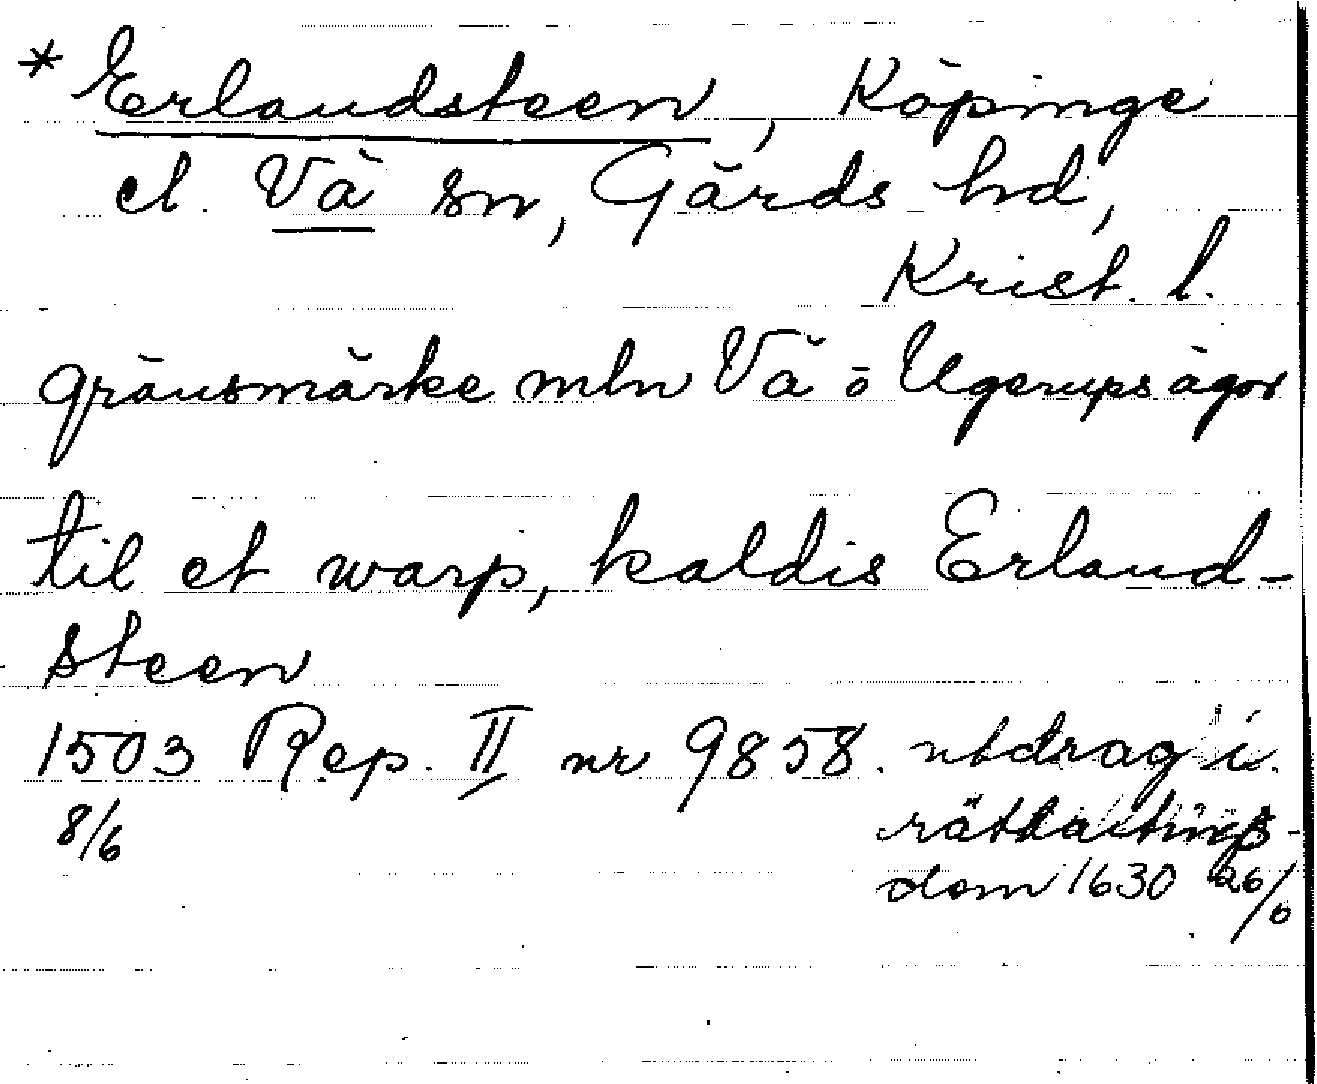 * Erlandsteen, Köpinge
el. Vä sn, Gärds hd,
Krist. l.
gränsmärke mln Vä o Ugerups ägor
til et warp, kaldis Erland-
steen
1503 Rep. II nr 9858. utdrag i
8/6
rättartings-
dom 1630 26/6